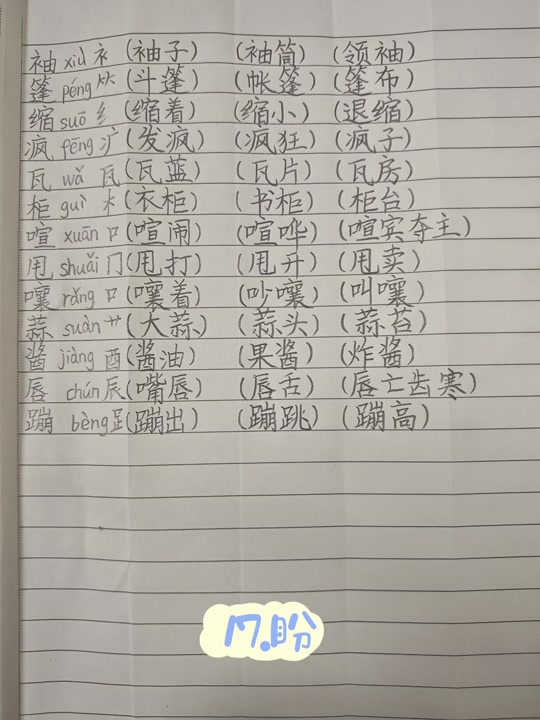 袖 xiù 衤 (袖子) (袖筒) (领袖)
篷 péng ⺮ (斗篷) (帐篷) (篷布)
缩 suō 纟 (缩着) (缩小) (退缩)
疯 fēng 疒 (发疯) (疯狂) (疯子)
瓦 wǎ 瓦 (瓦蓝) (瓦片) (瓦房)
柜 guì 木 (衣柜) (书柜) (柜台)
喧 xuān 口 (喧闹) (喧哗) (喧宾夺主)
甩 shuǎi 冂 (甩打) (甩开) (甩卖)
嚷 rǎng 口 (嚷着) (吵嚷) (叫嚷)
蒜 suàn 艹 (大蒜) (蒜头) (蒜苔)
酱 jiàng 酉 (酱油) (果酱) (炸酱)
唇 chún 辰 (嘴唇) (唇舌) (唇亡齿寒)
蹦 bèng 𧾷 (蹦出) (蹦跳) (蹦高)
17.盼